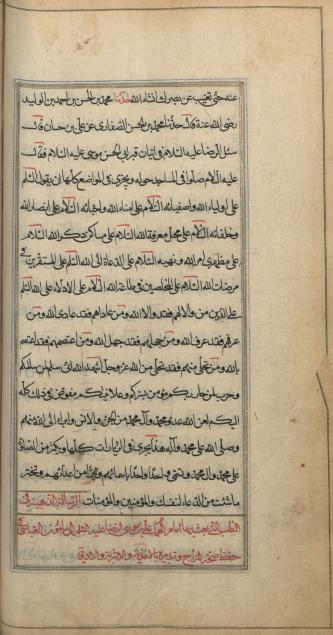 عنه حتى تغيب عن بصرك انشاء الله حدثنا محمد بن الحسن بن احمد بن الوليد
رضى الله عنه قال حدثنا محمد بن الحسن الصفار عن على بن حسان قال
سئل الرضا عليه السلام فى اتيان قبر ابى الحسن موسى عليه السلام فقال
عليه السلام صلوا فى المساجد حوله ويجزى فى المواضع كلها ان يقول السلم
على اولياء الله واصفيائه السلام على امناء الله واحبائه السلام على انصار الله
وخلفائه السلام على محل معرفة الله السلام على مساكن ذكر الله السلام
على مظهرى امر الله ونهيه السلام على الدعاة الى الله السلم على المستقرين فى
مرضات الله السلام على المخلصين فى طاعة الله السلام على الادلاء على الله السلم
على الذين من والاهم فقد والا الله ومن عاداهم فقد عادى الله ومن
عرفهم فقد عرف الله ومن جهلهم فقد جهل الله ومن اعتصم بهم فقد اعتصم
بالله ومن تخلى منهم فقد تخلى من الله عز وجل اشهد الله انى سلم لمن سالمكم
وحرب لمن حاربكم مؤمن بسركم وعلانيتكم مفوض فى ذلك كله
اليكم لعن الله عدو محمد وآل محمد من الجن والانس وابرء الى الله منهم
وصلى الله على محمد وآله هذا يجزى فى الزيارات كلها وتكثر من الصلوة
على محمد وآل محمد وتسمى واحدا واحدا باسمائهم وتبرأ من اعدائهم وتختر
ما شئت من الدعاء لنفسك وللمؤمنين والمؤمنات الرسالة الذهبية فى
الطب التى بعث بها امام على بن موسى الرضا عليه السلم الى المأمون العباسى فى
حفظ صحة المزاج وتدبيره بالاغذية والاشربة والادوية